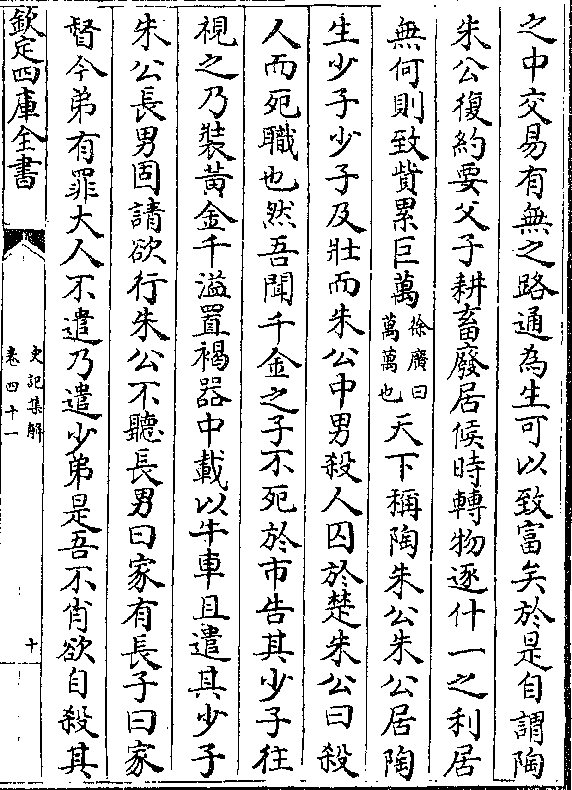 之中交易有無之路通為生可以致富矣於是自謂陶
朱公復約要父子耕畜廢居候時轉物逐什一之利居
無何則致貲累巨萬徐廣曰萬萬也天下稱陶朱公朱公居陶
生少子少子及壯而朱公中男殺人囚於楚朱公曰殺
人而死職也然吾聞千金之子不死於市告其少子往
視之乃裝黃金千溢置褐器中載以牛車且遣其少子
朱公長男固請欲行朱公不聽長男曰家有長子曰家
督今弟有罪大人不遣乃遣少弟是吾不肖欲自殺其
欽定四庫全書
史記集解
卷四十一
十